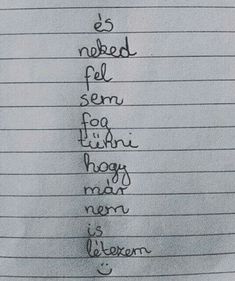 és
neked
fel
sem
fog
tűnni
hogy
már
nem
is
létezem